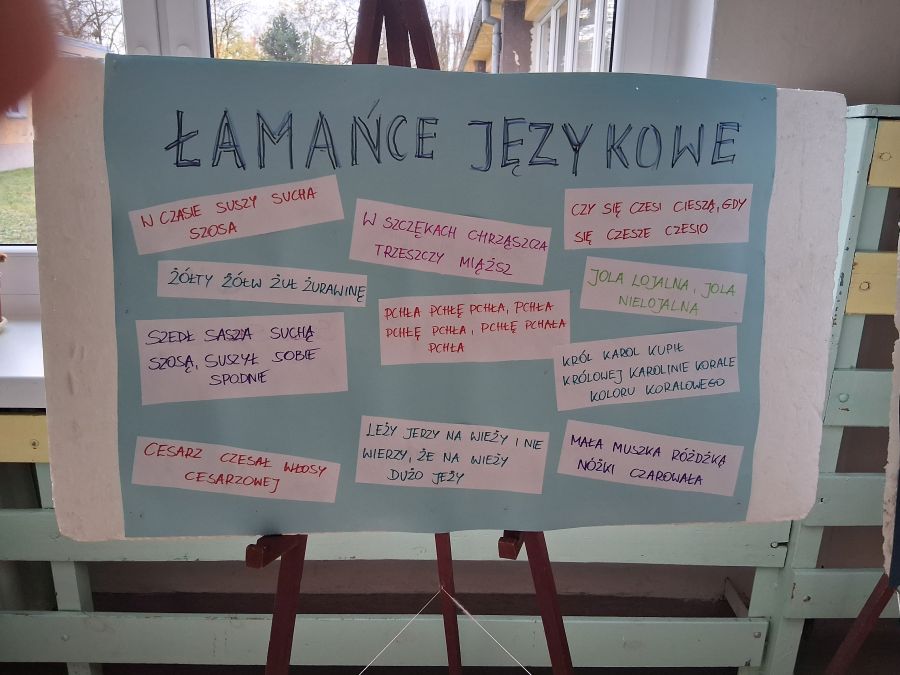 ŁAMAŃCE JĘZYKOWE
W CZASIE SUSZY SUCHA
SZOSA
W SZCZĘKACH CHRZĄSZCZA
TRZESZCZY MIĄŻSZ
CZY SIĘ CZESI CIESZĄ, GDY
SIĘ CZESZE CZESIO
ŻÓŁTY ŻÓŁW ŻUŁ ŻURAWINĘ
PCHŁA PCHŁĘ PCHŁA, PCHŁA
PCHŁĘ PCHŁA, PCHŁĘ PCHAŁA
PCHŁA
JOLA LOJALNA, JOLA
NIELOJALNA
SZEDŁ SASZA SUCHĄ
SZOSĄ, SUSZYŁ SOBIE
SPODNIE
KRÓL KAROL KUPIŁ
KRÓLOWEJ KAROLINIE KORALE
KOLORU KORALOWEGO
CESARZ CZESAŁ WŁOSY
CESARZOWEJ
LEŻY JERZY NA WIEŻY I NIE
WIERZY, ŻE NA WIEŻY
DUŻO JEŻY
MAŁA MUSZKA RÓŻDŻKĄ
NÓŻKI CZAROWAŁA